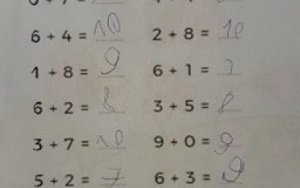 6 + 4 = 10 2 + 8 = 10
1 + 8 = 9 6 + 1 =
6 + 2 = 8 3 + 5 = 8
3 + 7 = 10 9 + 0 = 9
5 + 2 = 7 6 + 3 = 9